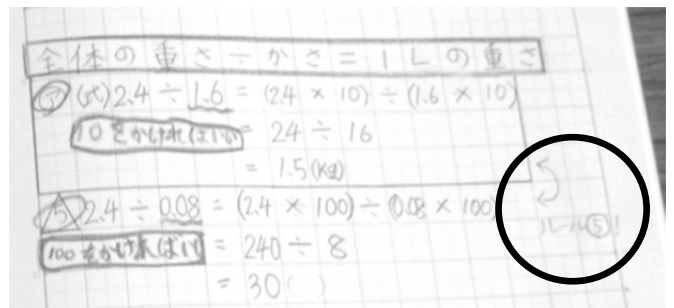 全体の重さ÷かさ=1Lの重さ
㋐ (式)2.4÷1.6=(2.4×10)÷(1.6×10)
10をかければいい=24÷16
=1.5(kg)
5 2.4÷0.08=(2.4×100)÷(0.08×100)
ルール⑤!
100をかければいい=240÷8
=30( )